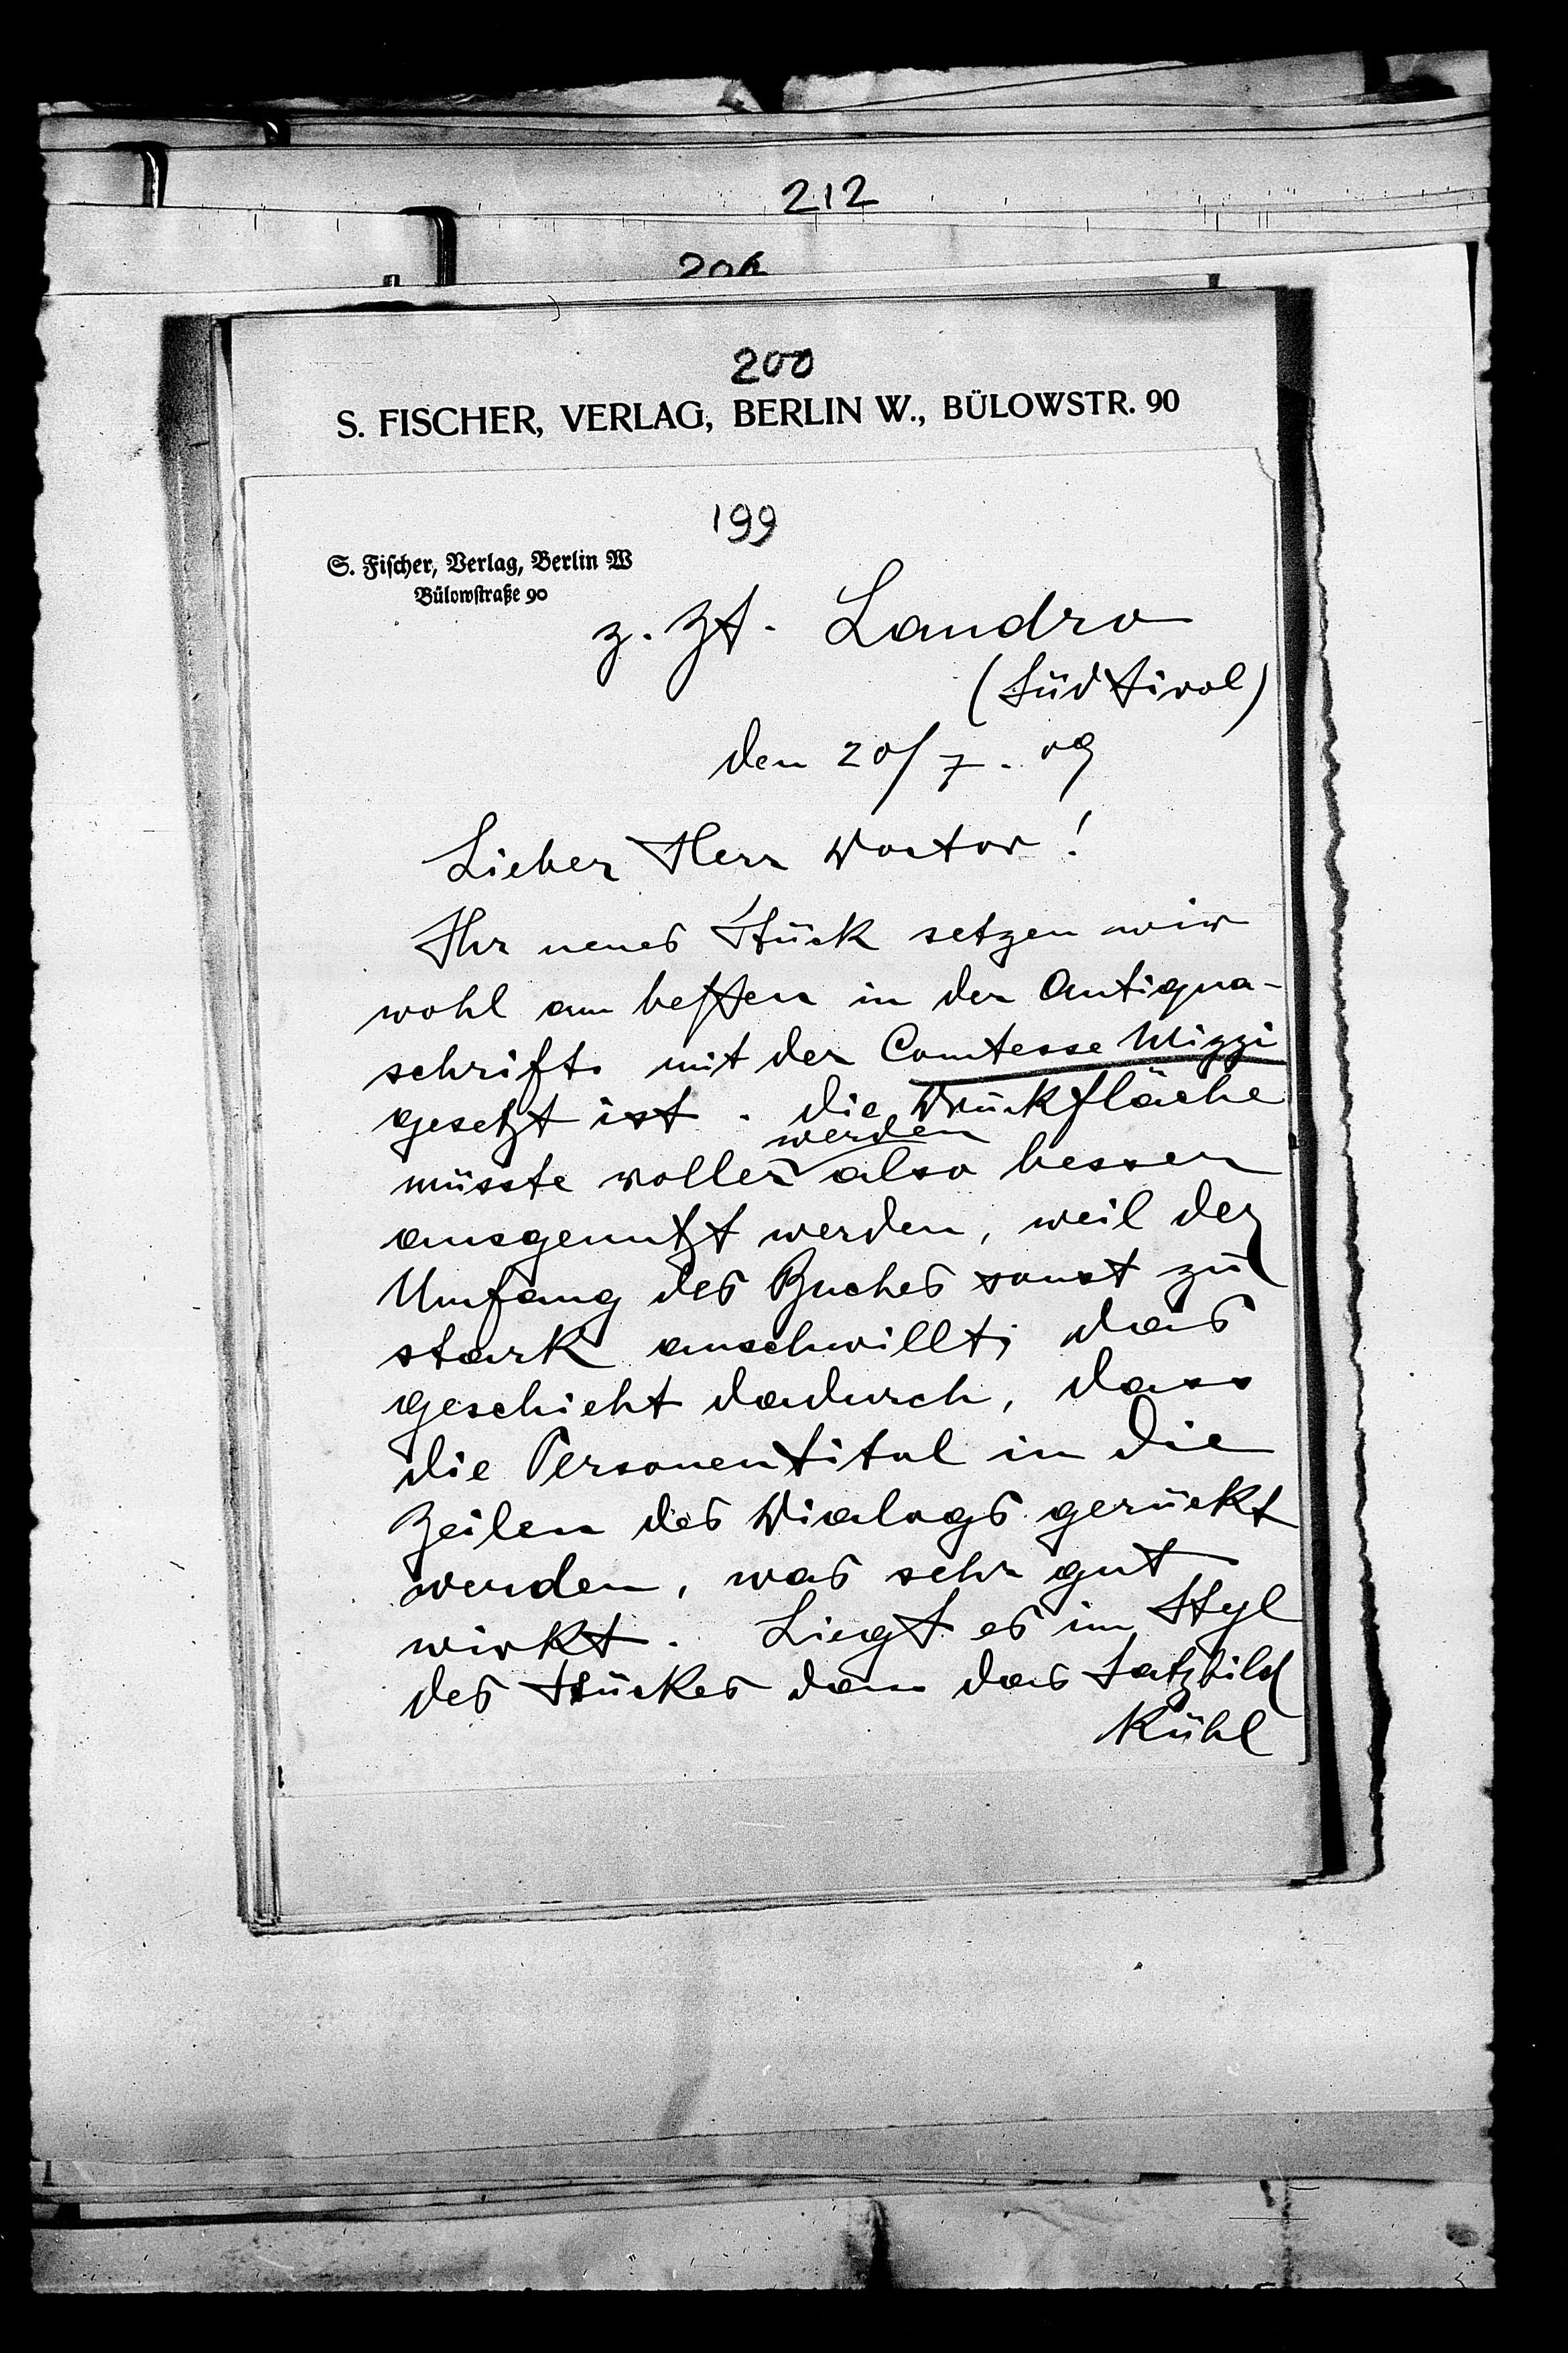 212
206
200
S. FISCHER, VERLAG, BERLIN W., BÜLOWSTR. 90
199
S. Fischer, Verlag, Berlin W
Bülowstraße 90
z. Zt. Landro
(Südtirol)
den 20/7. 09
Lieber Herr Doctor!
Ihr neues Stück setzen wir
wohl am besten in der Antiqua-
schrift, mit der Comtesse Mizzi
gesetzt ist. Die Druckfläche
werden
müsste voller also besser
ausgenutzt werden, weil der
Umfang des Buches sonst zu
stark anschwillt; das
geschieht dadurch, dass
die Personentitel in die
Zeilen des Dialogs gerückt
werden, was sehr gut
wirkt. Liegt es im Styl
des Stückes dann das Satzbild
kühl